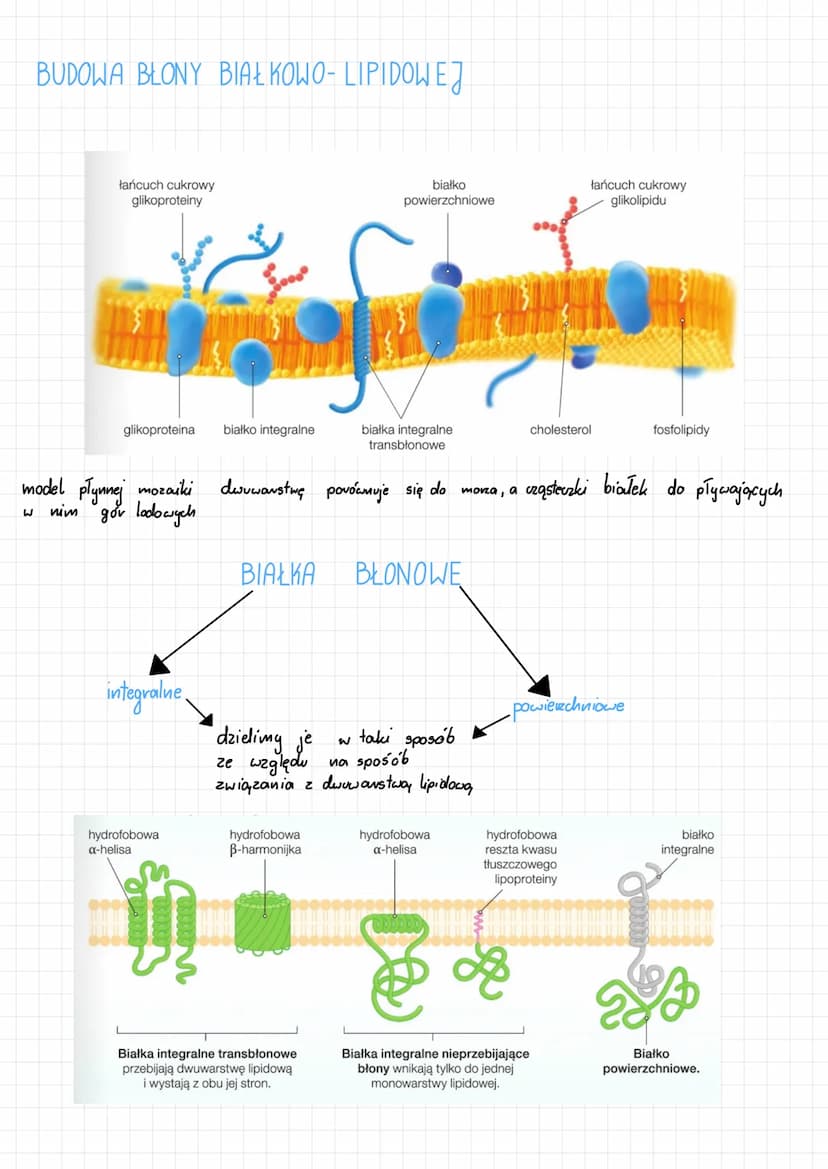 BUDOWA BŁONY BIAŁKOWO-LIPIDOWEJ
łańcuch cukrowy
glikoproteiny
białko
powierzchniowe
łańcuch cukrowy
glikolipidu
glikoproteina
białko integralne
białka integralne
transbłonowe
cholesterol
fosfolipidy
model płynnej mozaiki dwuwarstwę porównuje się do morza, a cząsteczki białek do pływających
w nim gór lodowych
BIAŁKA BŁONOWE
integralne
powierzchniowe
dzielimy je w taki sposób
ze względu na sposób
związania z dwuwarstwą lipidową
hydrofobowa
α-helisa
hydrofobowa
β-harmonijka
hydrofobowa
α-helisa
hydrofobowa
reszta kwasu
tłuszczowego
lipoproteiny
białko
integralne
Białka integralne transbłonowe
przebijają dwuwarstwę lipidową
i wystają z obu jej stron.
Białka integralne nieprzebijające
błony wnikają tylko do jednej
monowarstwy lipidowej.
Białko
powierzchniowe.